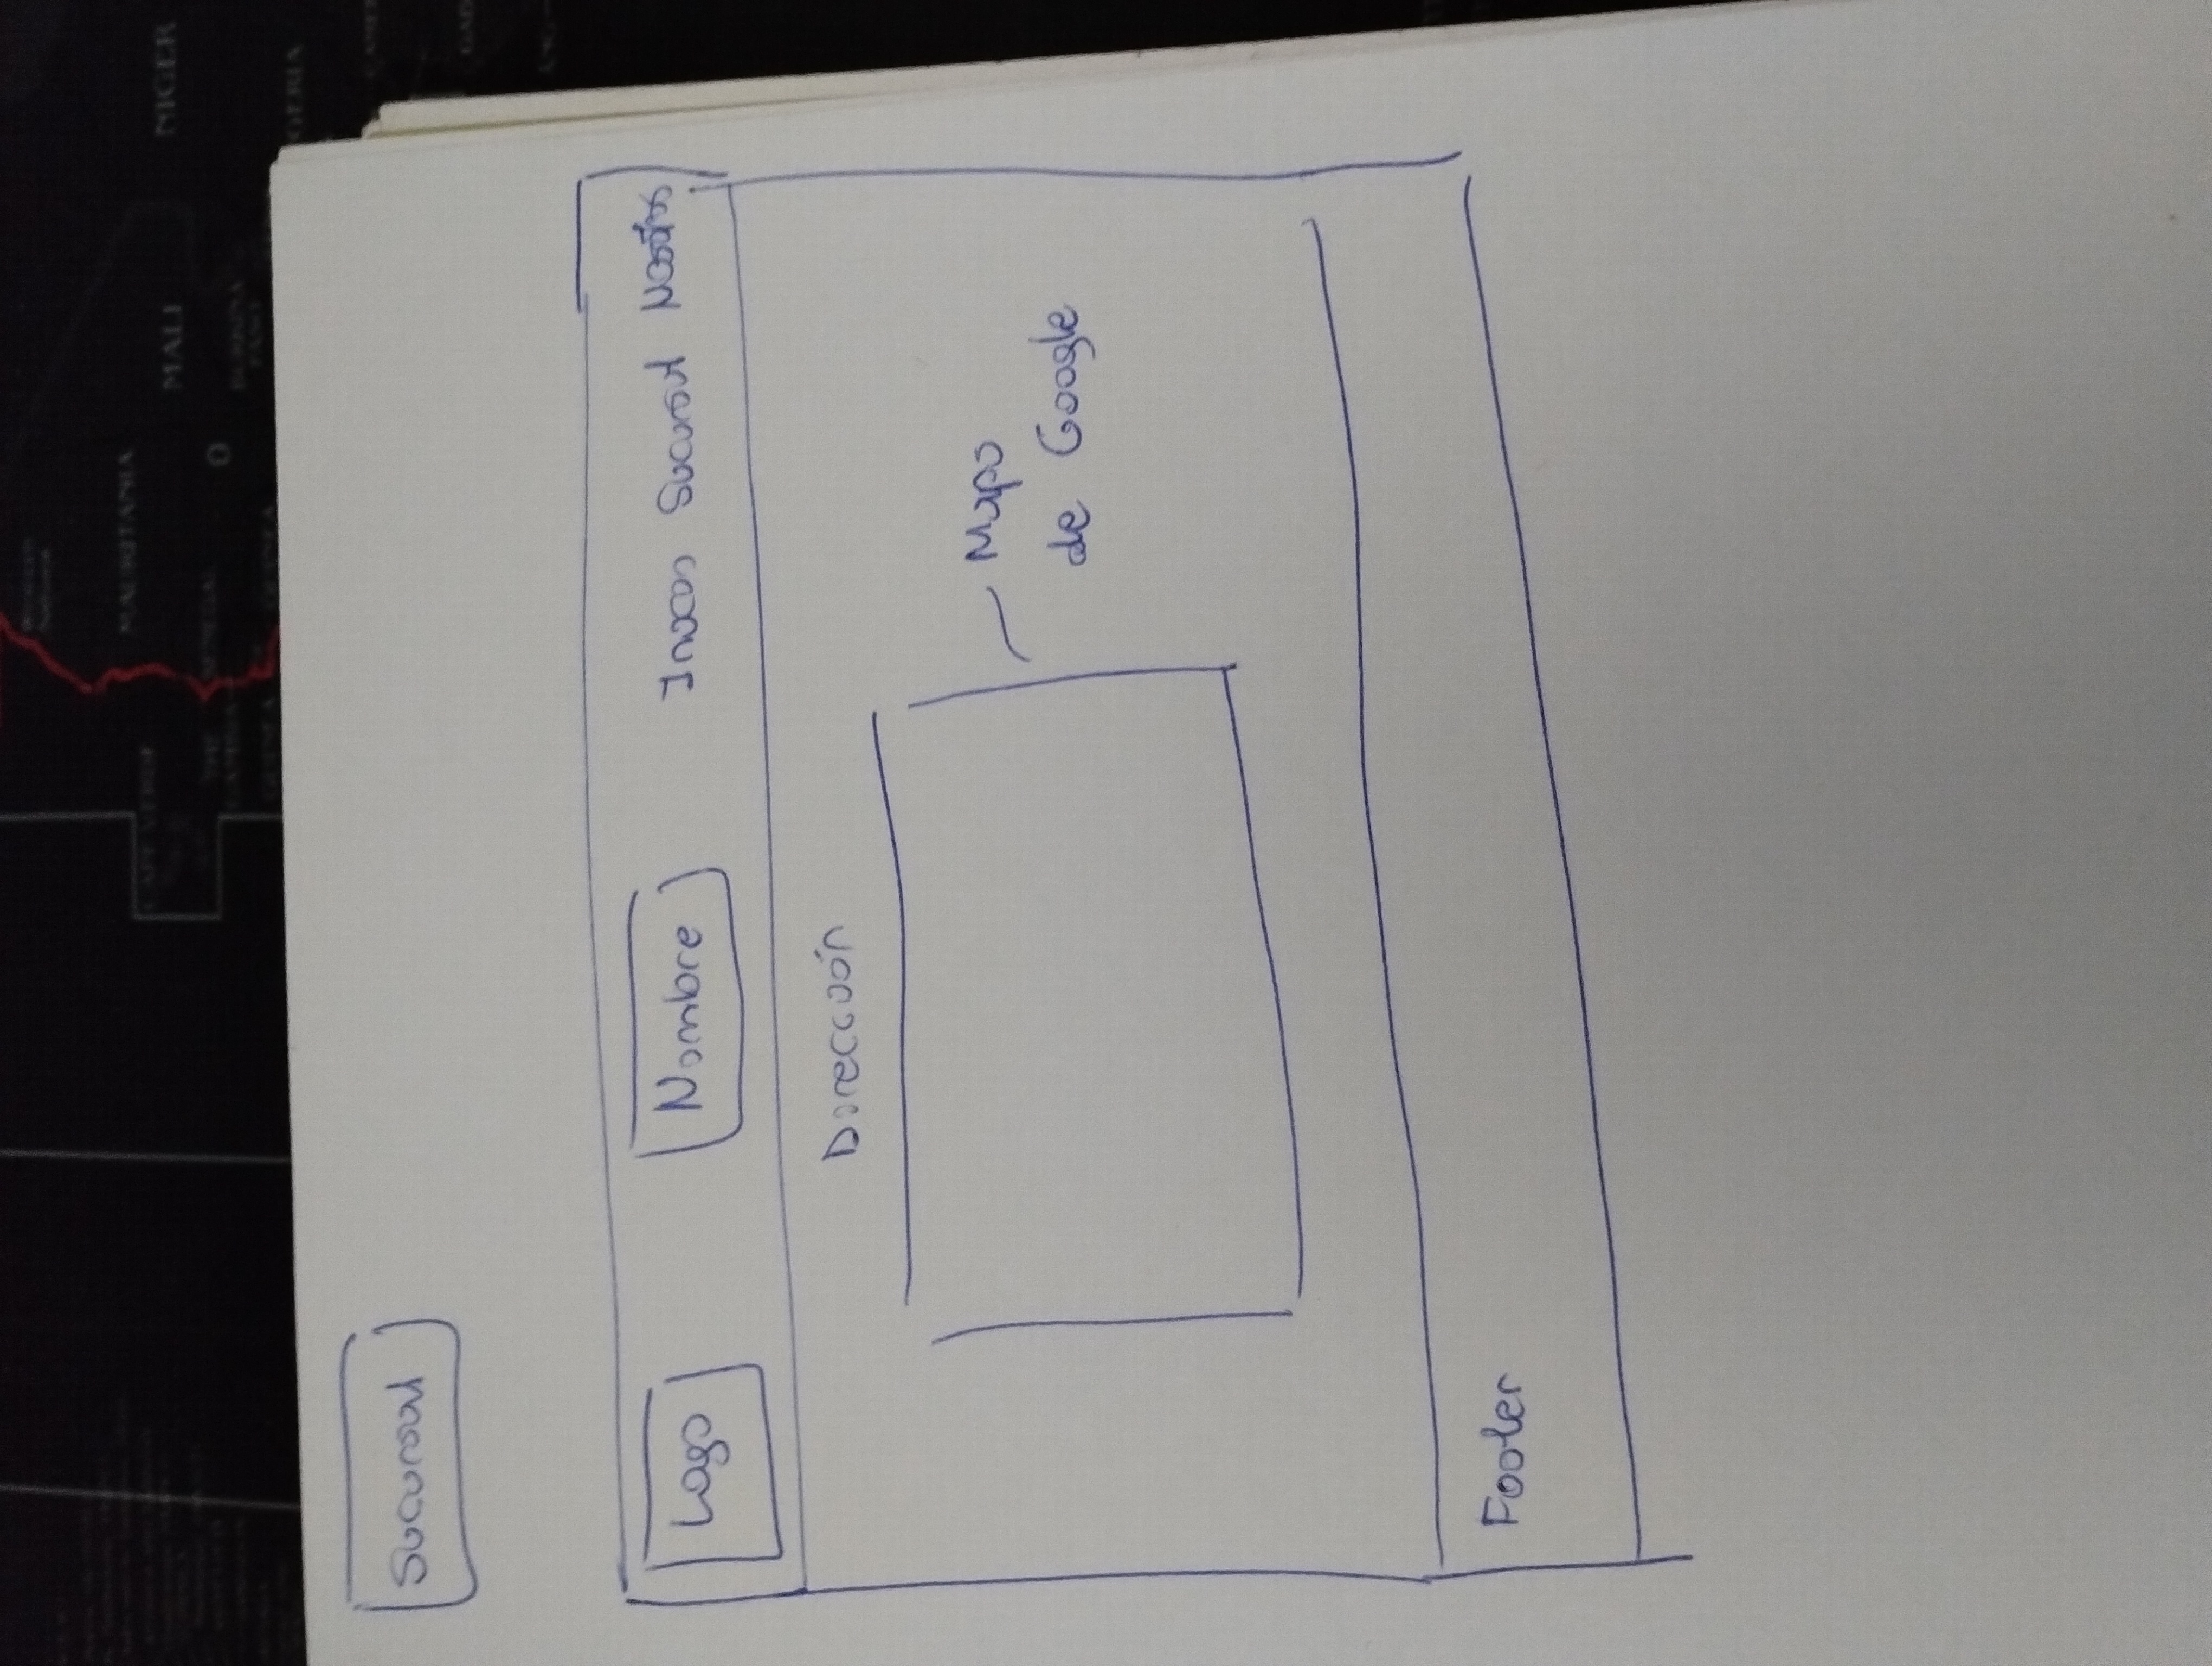 MAURITANIA
CAPE VERDE
MALI
NIGER
THE
GAMBIA
SENEGAL
BURKINA
FASO
GUINEA
GUINEA
Sucursal
Logo
Nombre
Inicio Sucursal Nosotros
Dirección
Mapa
de Google
Footer